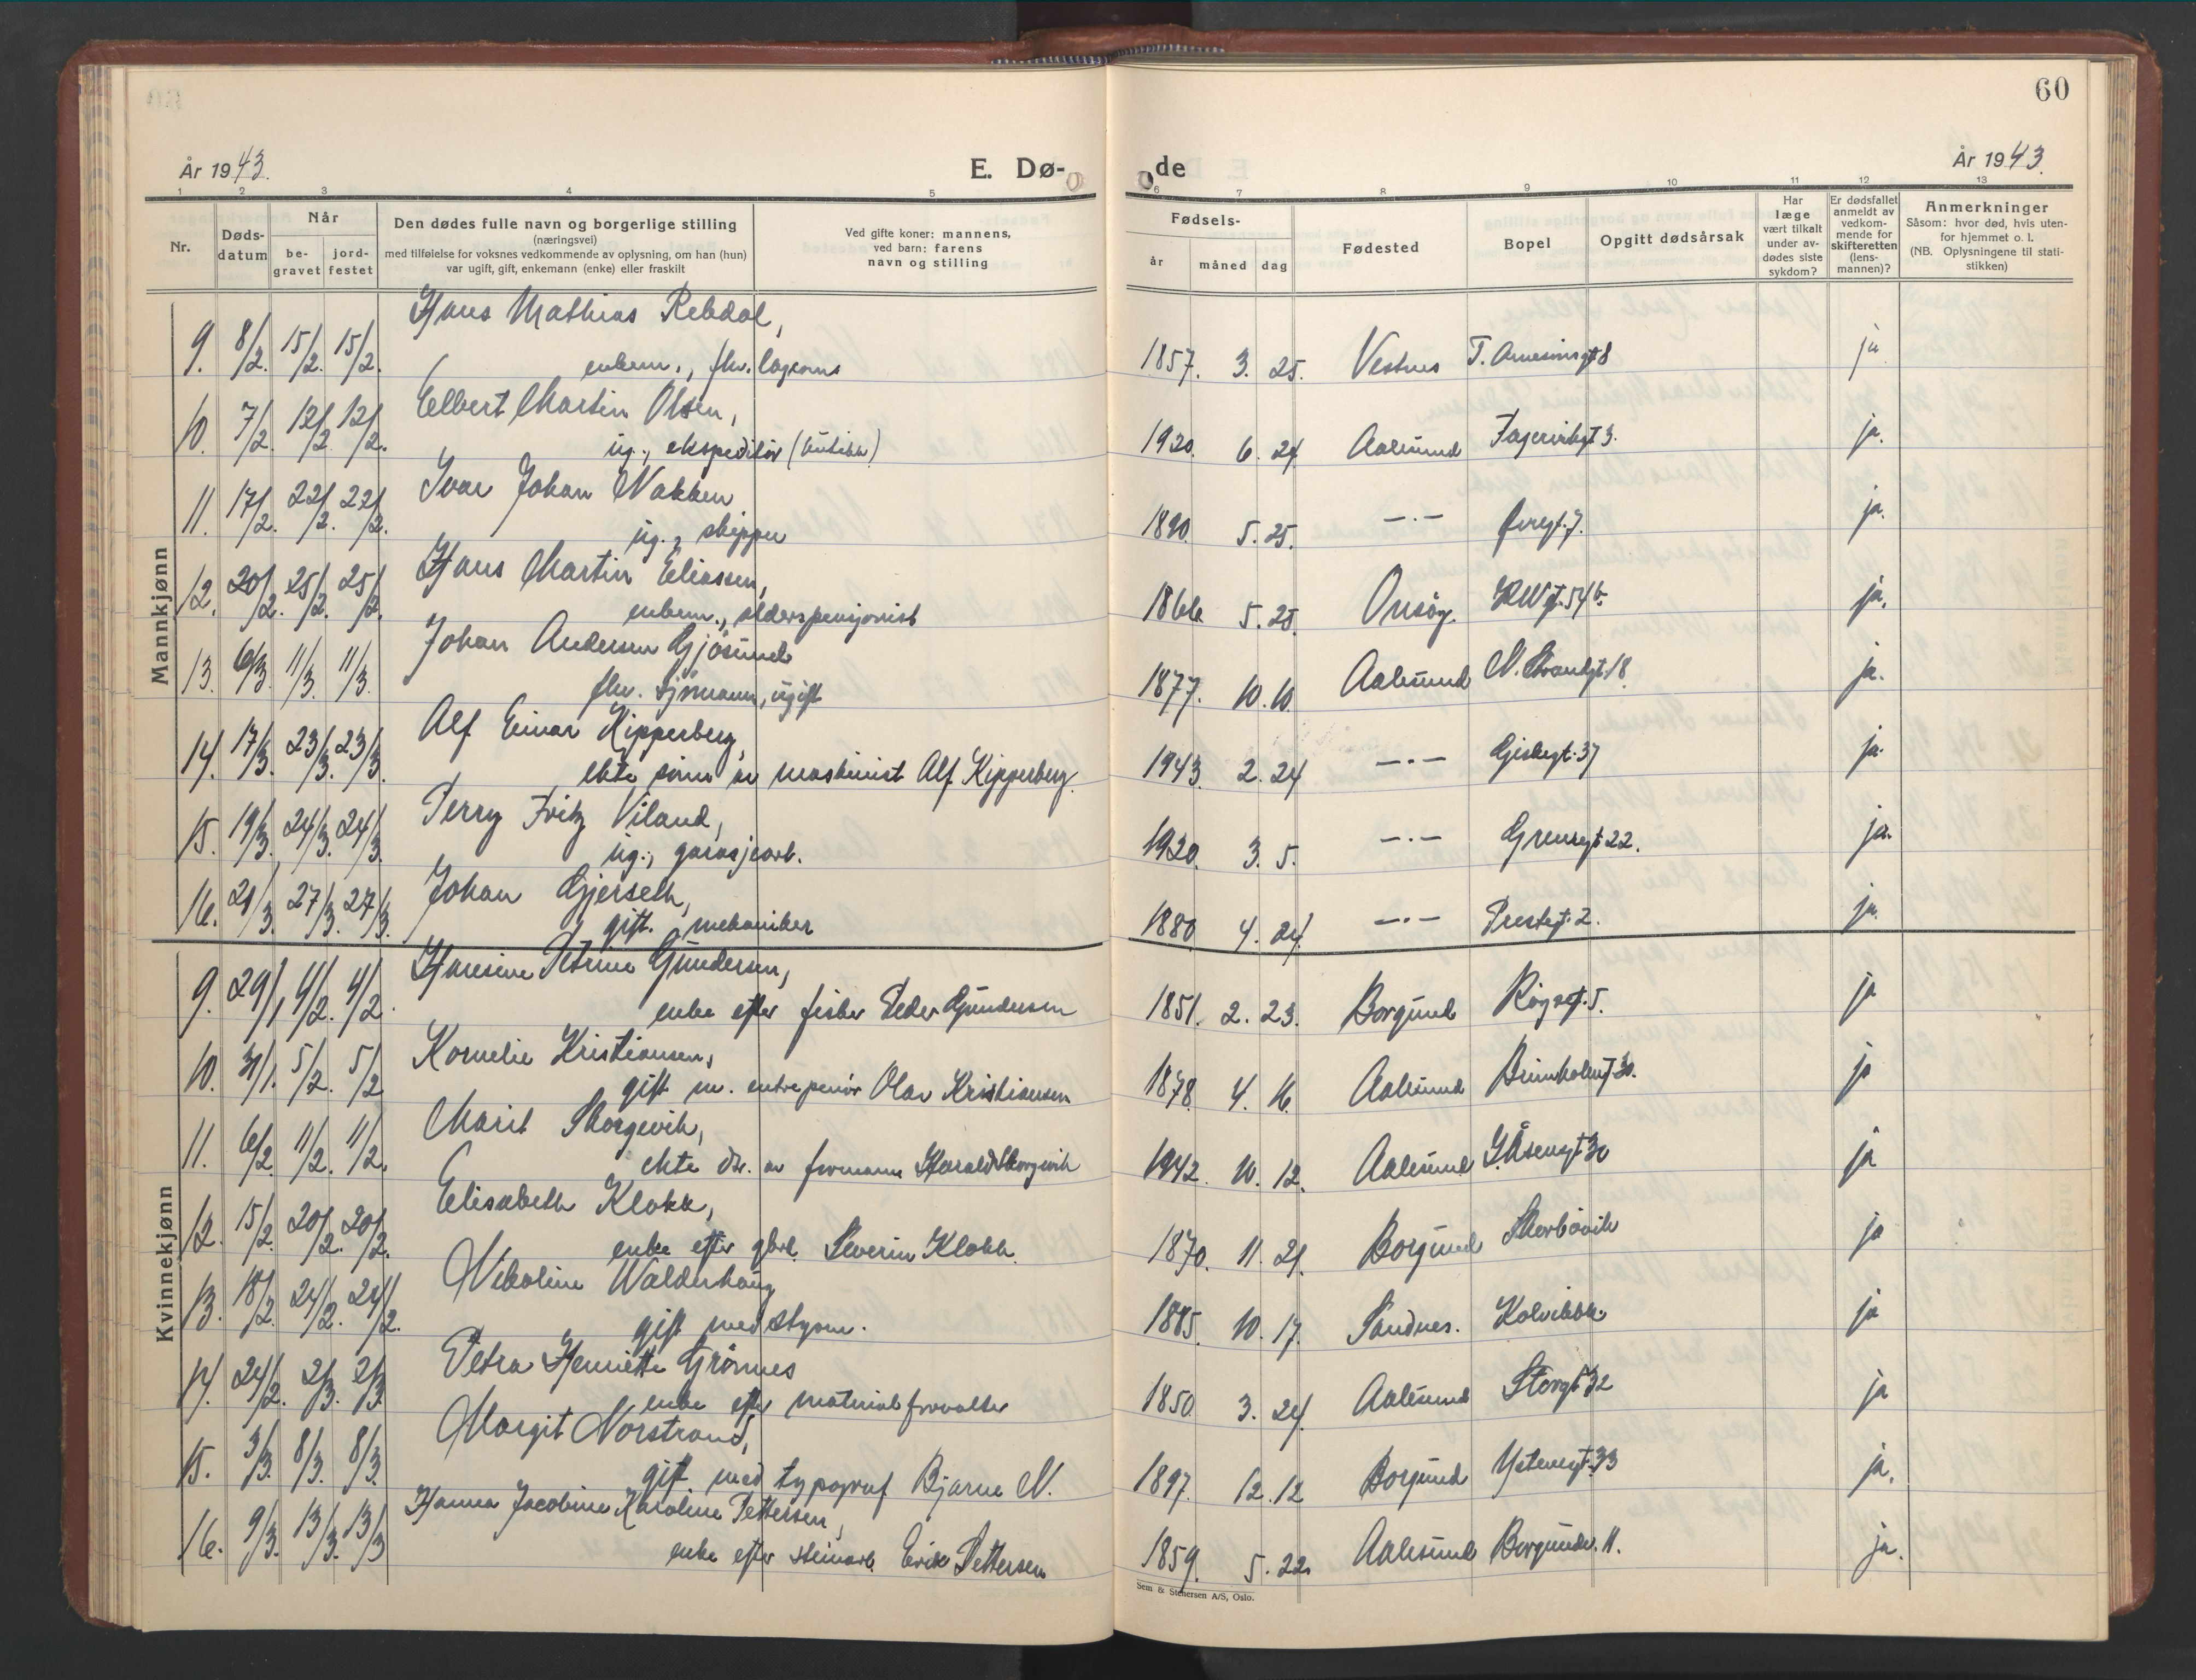 60
År 1943.
E. Dø-
de
År 1943.
1 2 3 4 5 6 7 8 9 10 11 12 13
Nr.
Døds-
datum
Når
be-
gravet
jord-
festet
Den dødes fulle navn og borgerlige stilling
(næringsvei)
med tilføielse for voksnes vedkommende av oplysning, om han (hun)
var ugift, gift, enkemann (enke) eller fraskilt
Ved gifte koner: mannens,
ved barn: farens
navn og stilling
Fødsels-
år måned dag
Fødested
Bopel
Opgitt dødsårsak
Har
læge
vært tilkalt
under av-
dødes siste
sykdom?
Er dødsfallet
anmeldt av
vedkom-
mende for
skifteretten
(lens-
mannen)?
Anmerkninger
Såsom: hvor død, hvis uten-
for hjemmet o. l.
(NB. Oplysningene til stati-
stikken)
Mannkjønn
Hans Mathias Rebdal,
9. 8/2. 15/2. 15/2. enkem., fhv. 1857. 3. 25. Vestnes ja
Elbert Martin Olsen,
10. 7/2. 12/2 12/2. ug., ekspeditør (butikk) 1920. 6. 24. Aalesund ja.
Ivar Johan Nakken
11. 17/2. 22/2. 22/2. ug., skipper 1890. 5. 25. —.— Øvregt. 7. ja.
Hans Martin Eliassen,
12. 20/2. 25/2. 25/2. enkem., alderspensjonist 1866. 5. 25. Onsøy. ja.
Johan Andersen Gjøsund
13. 6/3. 11/3. 11/3. fhv. sjømann, ugift 1877. 10. 10. Aalesund N. Strandgt. 18 ja.
Alf Einar Kipperberg,
14. 17/3. 23/3. 23/3. ekte sønn av maskinist Alf Kipperberg. 1943. 2. 24. —.— Giskegt. 37 ja.
Perry Fritz Viland,
15. 19/3. 24/3. 24/3. ug., garasjearb. 1920. 3. 5. —.— Grensegt 22. ja.
Johan Gjerseth,
16. 21/3. 27/3. 27/3. gift. mekaniker 1880. 4. 24. —.— Prestegt. 2. ja.
Kvinnekjønn
Hansine Petrine Gundersen,
9. 29/1 4/2. 4/2. enke efter fisker Peder Gundersen 1851. 2. 23. Borgund ja
Kornelie Kristiansen,
10. 31/1. 5/2. 5/2 gift m. entrepenør Olav Kristiansen 1878. 4. 16. Aalesund ja
Marit Skorgevik,
11. 6/2. 11/2. 11/2. ekte dtr. av formann Harald Skorgevik 1942. 10. 12. Aalesund I. Åsensgt 30 ja
Elisabeth Klokk,
12. 15/2. 20/2. 20/2. enke efter gbr. Severin Klokk. 1870. 11. 21. Borgund Skarbøvik ja
Nikoline Walderhaug
13. 18/2. 24/2. 24/2. gift med styrm. 1885. 10. 17. Sandnes. ja
Petra Henriette Grønnes
14. 24/2. 2/3. 2/3. enke efter materialforvalter 1850. 3. 24. Aalesund Storgt 32 ja
Margit Norstrand,
15. 3/3. 8/3. 8/3. gift med typograf Bjarne N. 1897. 12. 12 Borgund ja.
Hanna Jacobine Karoline Pettersen,
16. 9/3. 13/3. 13/3 enke efter steinarb. Erik Pettersen 1859. 5. 22. Aalesund Borgundv. 11. ja.
Sem & Stenersen A/S, Oslo.